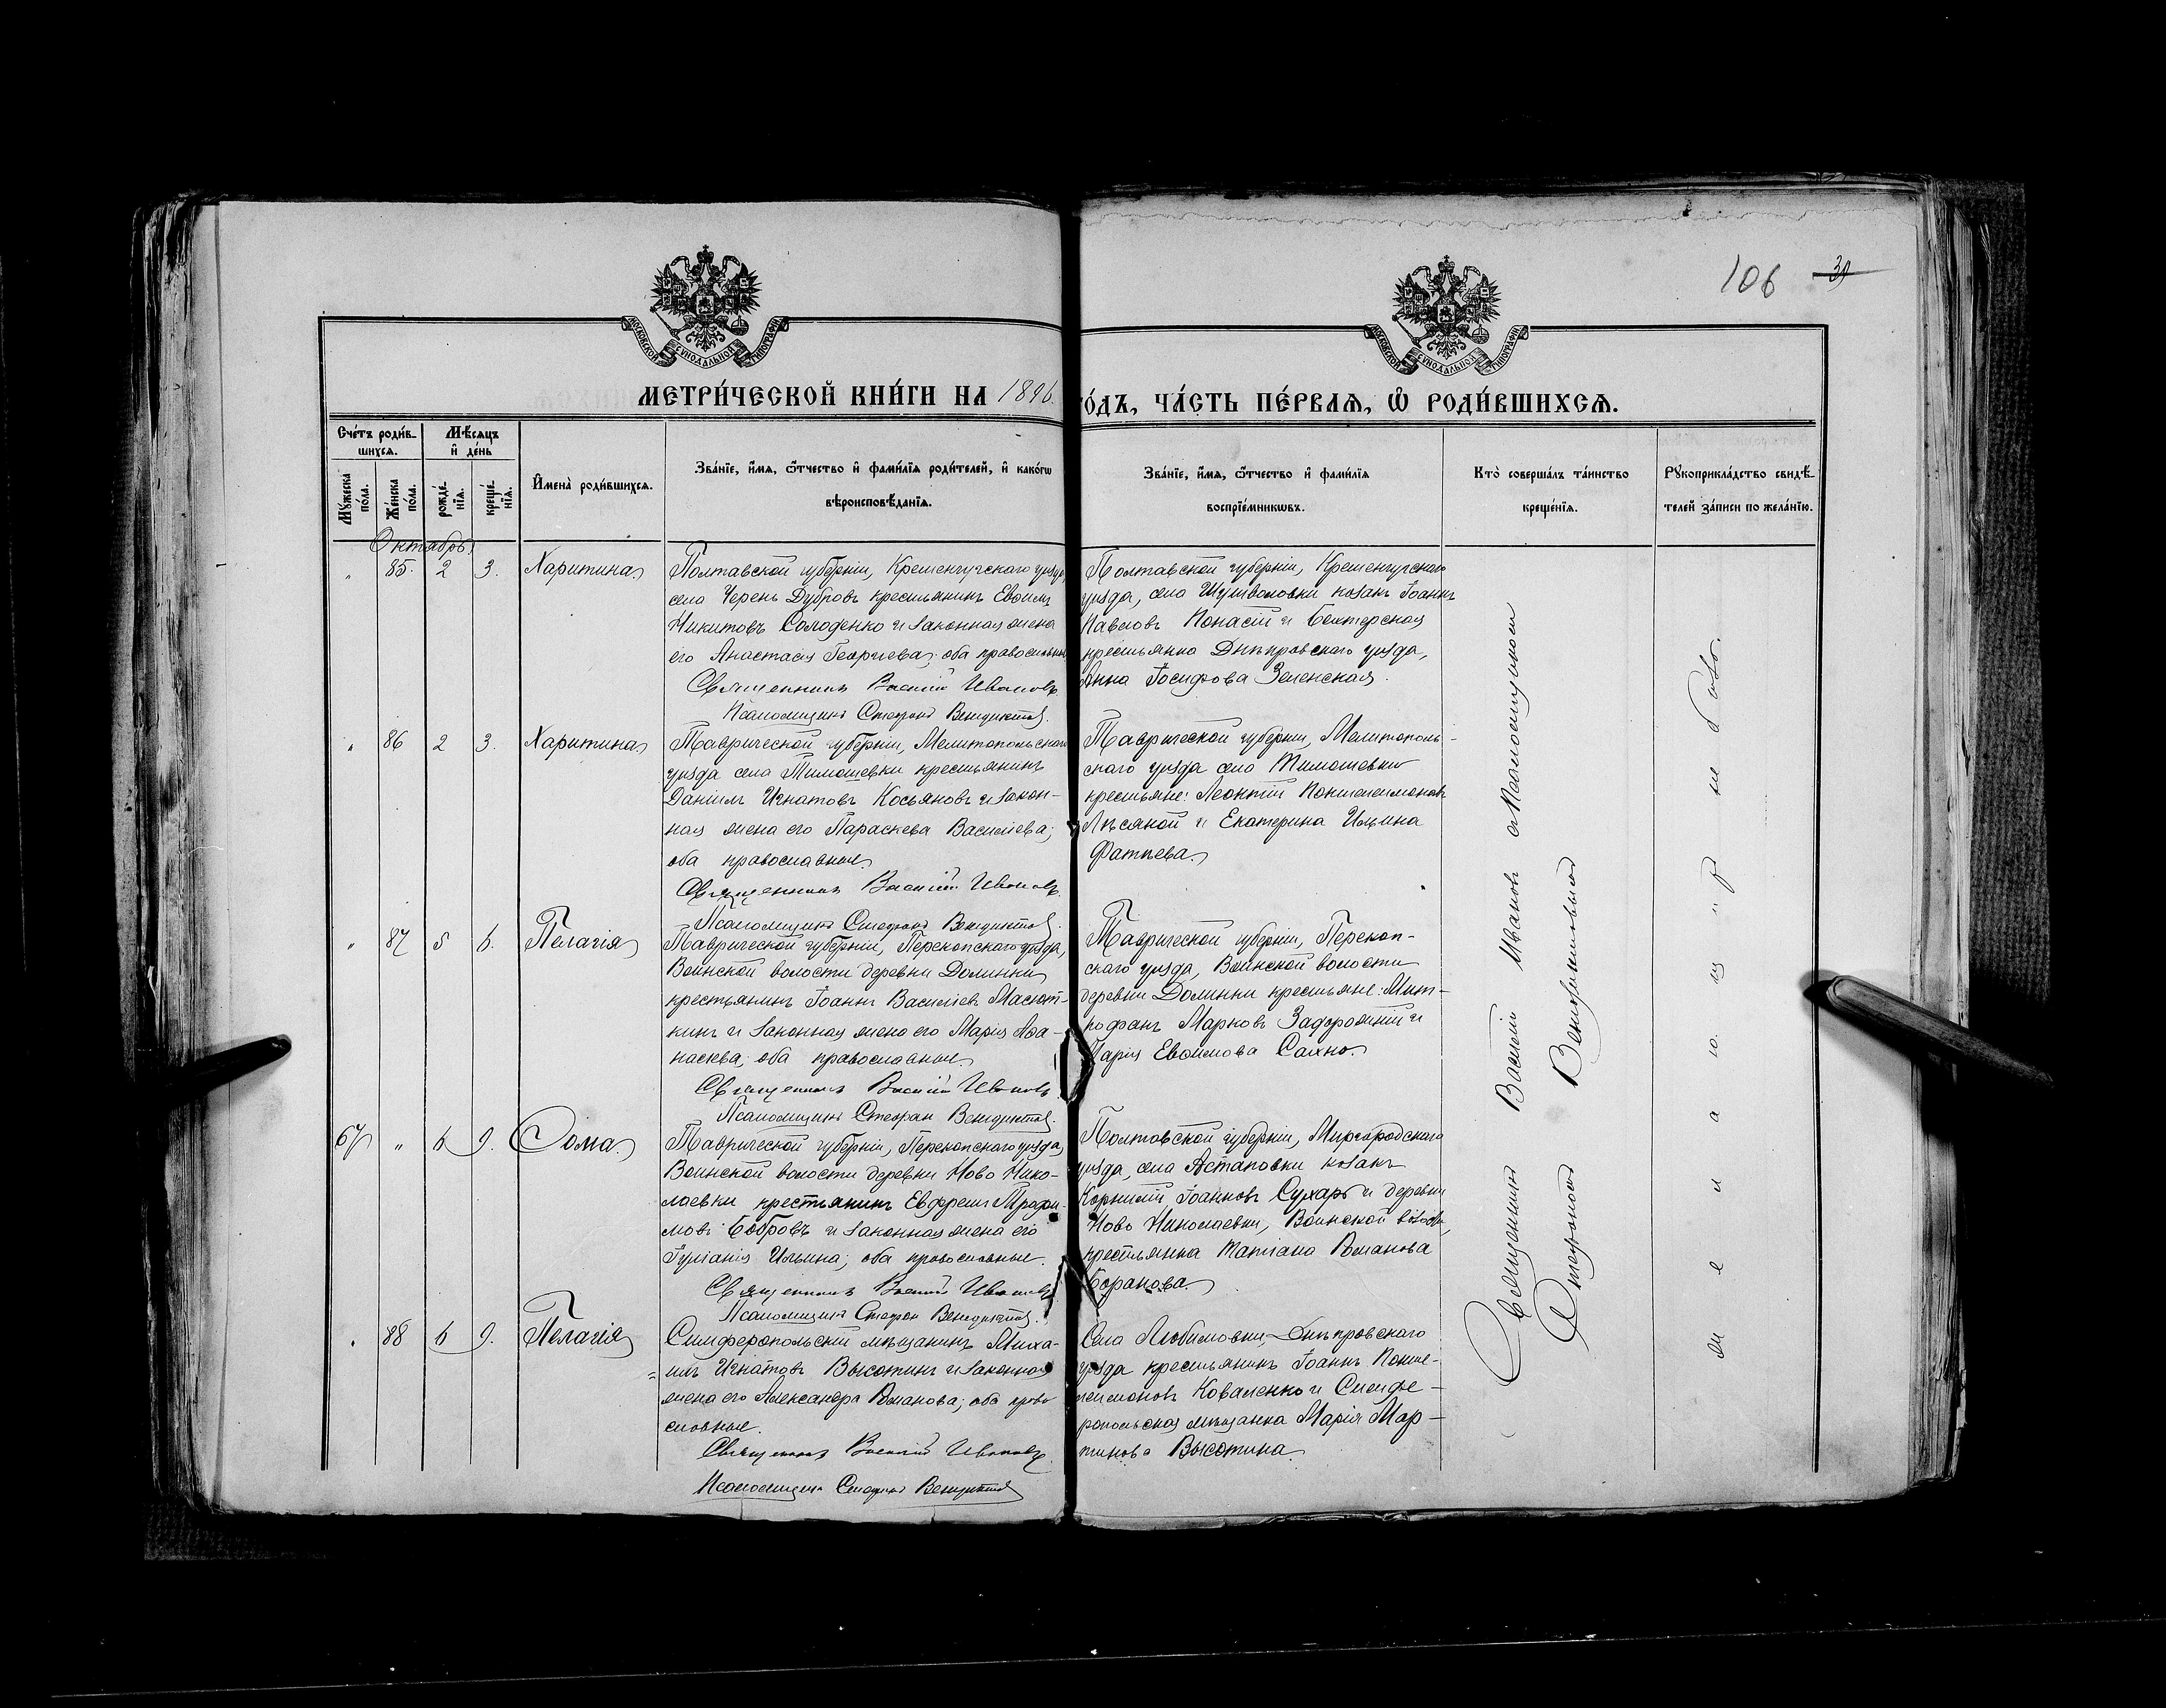 106 39
МОСКОВСКОЙ СѴНОДАЛЬНОЙ ТИПОГРАФІИ
МОСКОВСКОЙ СѴНОДАЛЬНОЙ ТИПОГРАФІИ
МЕТРИ́ЧЕСКОЙ КНИ́ГИ НА 1896. ГО́ДЪ, ЧА́СТЬ ПЕ́РВАѦ, Ѡ҆ РОДИ́ВШИХСѦ.
Сче́тъ роди́в-
шихсѧ.
Мѣ́сѧцъ
и҆ де́нь
Мꙋ́жеска по́ла.
Же́нска по́ла.
рожде́-
нїѧ.
креще́-
нїѧ.
И҆мена̀ роди́вшихсѧ.
Зва́нїе, и҆́мѧ, ѻ҆́тчество и҆ фами́лїѧ роди́телей, и҆ како́гѡ
вѣроисповѣ́данїѧ.
Зва́нїе, и҆́мѧ, ѻ҆́тчество и҆ фами́лїѧ
воспрїе́мникѡвъ.
Кто̀ соверша́лъ та́инство
креще́нїѧ.
Рꙋкоприкла́дство свидѣ́-
телей за́писи по жела́нїю.
Октябрь
" 85. 2 3. Харитина
Полтавской губерніи, Кременчугскаго уѣзда,
села Черень Дубровъ крестьянинъ Евѳимъ
Никитовъ Солоденко и законная жена
его Анастасія Георгіева; оба православные
Священникъ Василій Ивановъ
Псаломщикъ Стефанъ Венедиктовъ.
Полтавской губерніи, Кременчугскаго
уѣзда, села козакъ Іоаннъ
Павловъ и Бехтерская
крестьянка Днѣпровскаго уѣзда,
Анна Іосифова Зеленская.
" 86 2 3. Харитина
Таврической губерніи, Мелитопольскаго
уѣзда села Тимошевки крестьянинъ
Даніилъ Игнатовъ Косьяновъ и закон-
ная жена его Параскева Василіева;
оба православные
Священникъ Василій Ивановъ.
Псаломщикъ Стефанъ Венедиктовъ.
Таврической губерніи, Мелитополь-
скаго уѣзда село Тимошевки
крестьяне: Леонтій Пантелеимоновъ
Лѣсяной и Екатерина Ильина
Фатѣева.
" 87 5 6. Пелагія
Таврической губерніи, Перекопскаго уѣзда,
Воинской волости деревни Долинки
крестьянинъ Іоаннъ Василіевъ Маснот-
кинъ и законная жена его Марія Аѳа-
насіева; оба православные.
Священникъ Василій Ивановъ
Псаломщикъ Стефанъ Венедиктовъ.
Таврической губерніи, Перекоп-
скаго уѣзда, Воинской волости
деревни Долинки крестьяне: Мит-
рофанъ Марковъ Задорожній и
Марія Евѳимова Сахно.
67 " 6 9. Ѳома.
Таврической губерніи, Перекопскаго уѣзда,
Воинской волости деревни Ново Нико-
лаевки крестьянинъ Ефремъ Трофи-
мовъ Бобровъ и законная жена его
Іуліанія Ильина; оба православные.
Священникъ Василій Ивановъ
Псаломщикъ Стефанъ Венедиктовъ.
Полтавской губерніи, Миргородскаго
уѣзда, села Астаповки козакъ
Корнилій Іоанновъ Сухарь и деревни
Ново Николаевки, Воинской волости,
крестьянка Татіана Романова
Боранова.
" 88 6 9. Пелагія
Симферопольскій мѣщанинъ Миха-
илъ Игнатовъ Высотинъ и законная
жена его Александра Романова; оба право
славные.
Священникъ Василій Ивановъ.
Псаломщикъ Стефанъ Венедиктовъ
Села Любимовки, Днѣпровскаго
уѣзда крестьянинъ Іоаннъ Панте-
леимоновъ Коваленко и Симфе-
ропольская мѣщанка Марія Мар-
тинова Высотина.
Священникъ Василій Ивановъ съ Псаломщикомъ
Стефаномъ Венедиктовымъ